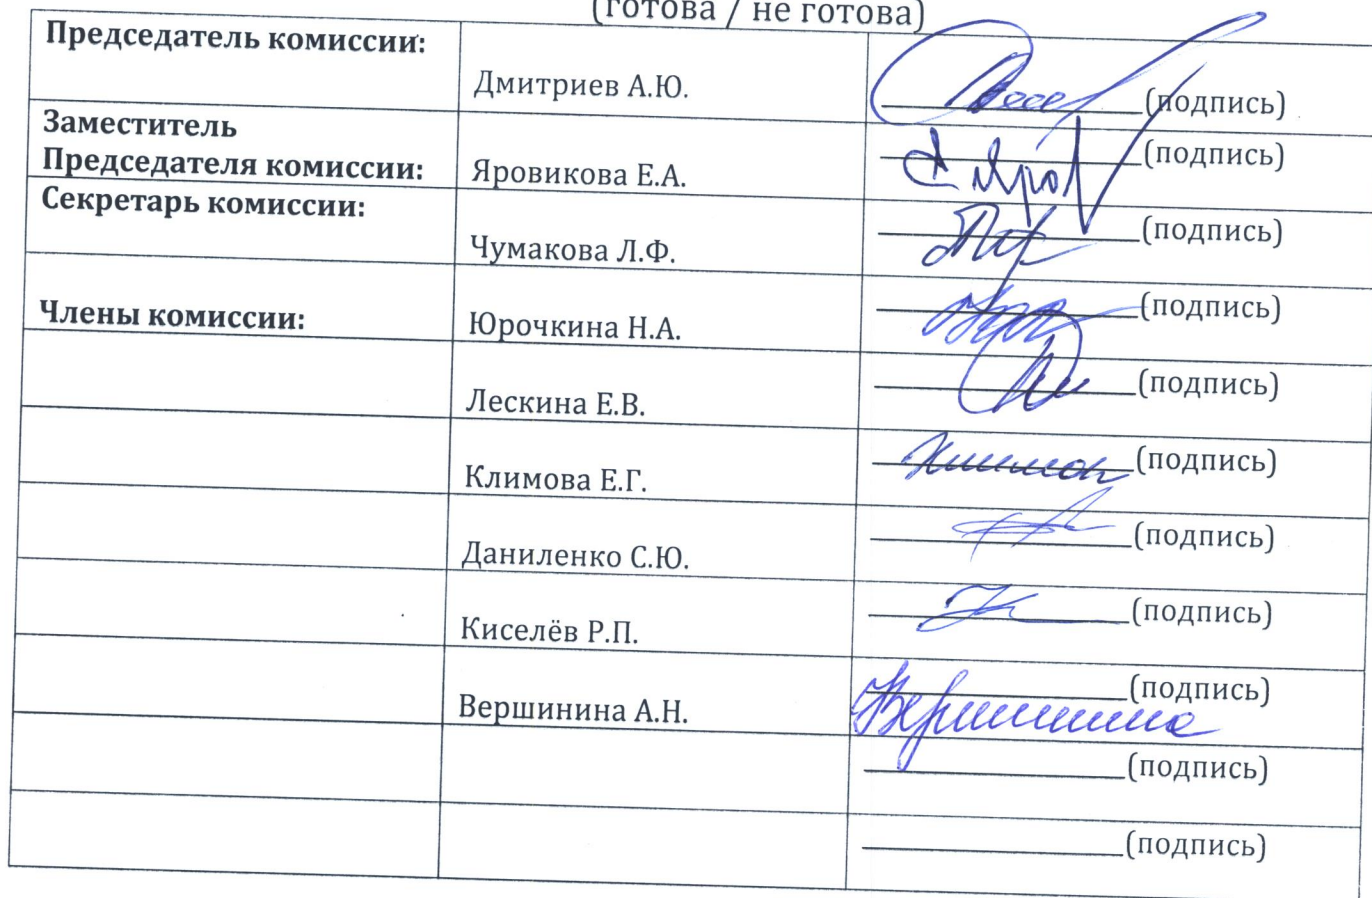 (готова / не готова)
Председатель комиссии:
Дмитриев А.Ю.
(подпись)
Заместитель
Председателя комиссии:
Яровикова Е.А.
(подпись)
Секретарь комиссии:
Чумакова Л.Ф.
(подпись)
Члены комиссии:
Юрочкина Н.А.
(подпись)
Лескина Е.В.
(подпись)
Климова Е.Г.
(подпись)
Даниленко С.Ю.
(подпись)
Киселёв Р.П.
(подпись)
Вершинина А.Н.
(подпись)
Вершинина
(подпись)
(подпись)